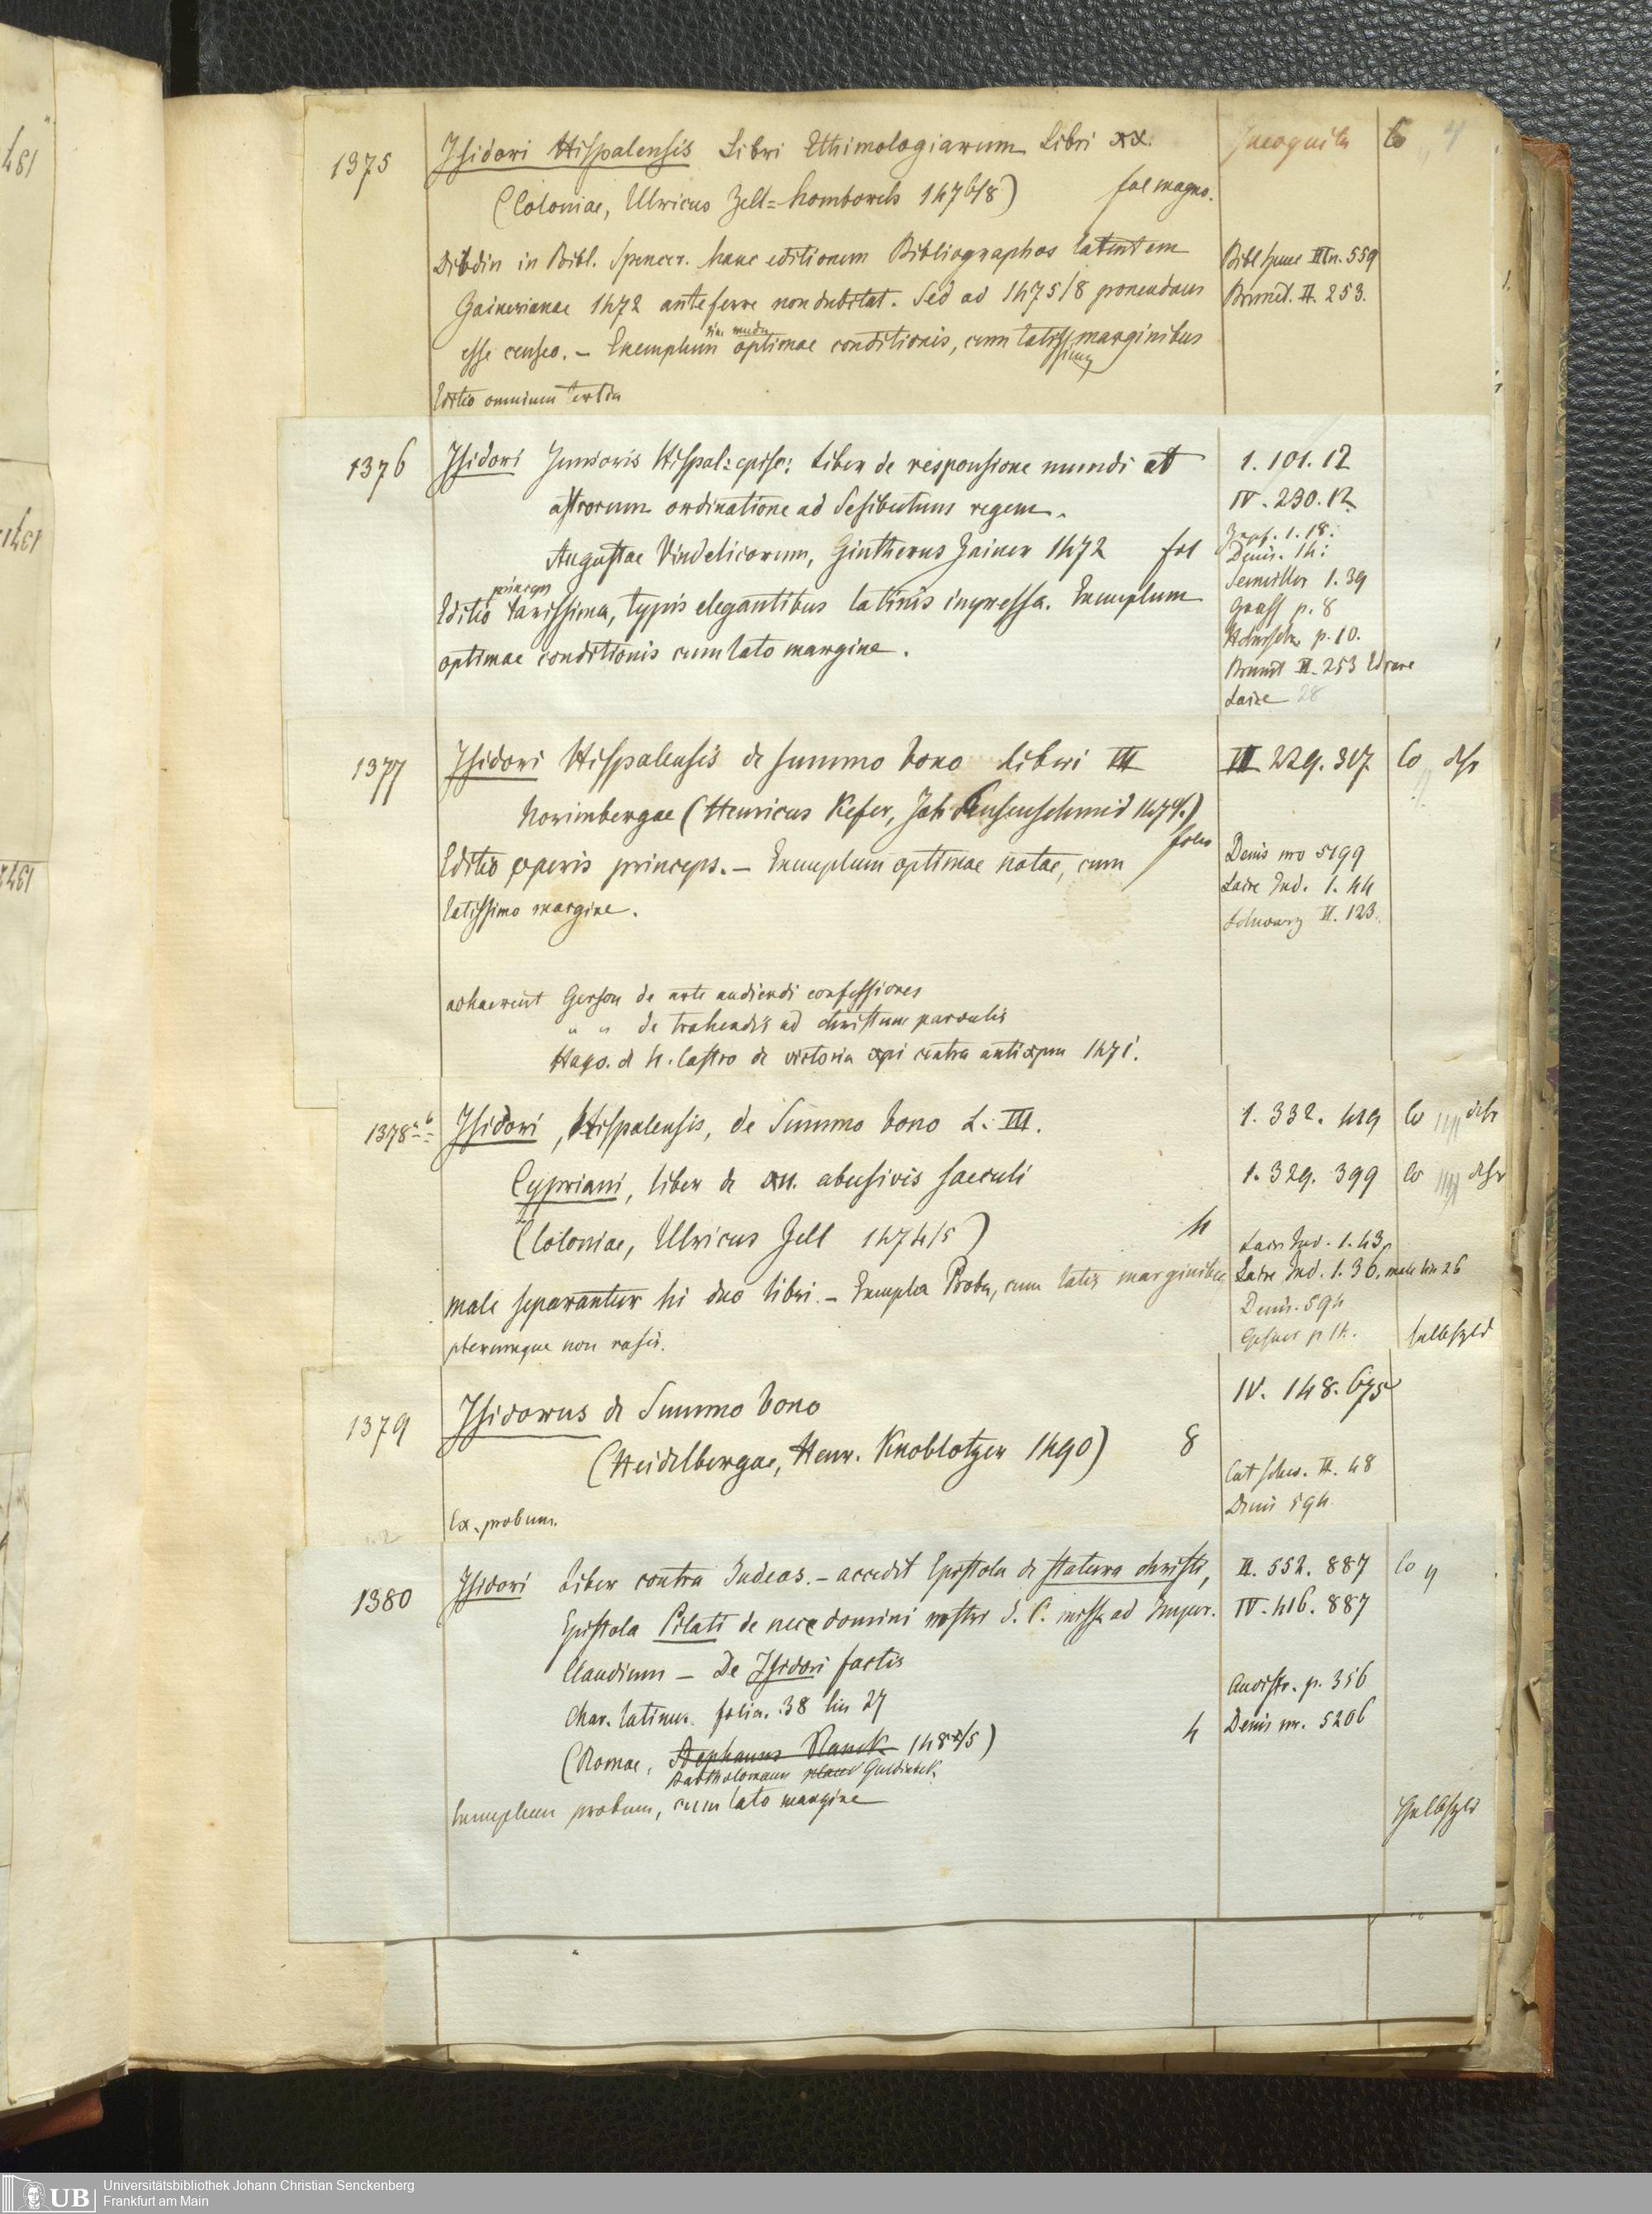 1375 Isidori Hispalensis Libri Ethimologiarum Libri xx. Incognita Co
(Coloniae, Ulricus Zell = homborch 1476/8) fol magno.
Dibdin in Bibl. Spencer. hanc editionem Bibliographos latentem Bibl Spenc III n. 559
Zainerianae 1472 anteferre non dubitat. Sed ad 1475/8 ponendam Brunet. II. 253.
esse censeo. – Exemplum optimae conditionis, cum latissimis marginibus
Editio omnium tertia
1376 Isidori Junioris Hispal: episc: Liber de responsione mundi et 1. 101. 12
astrorum ordinatione ad Sesibutum regem. IV. 230. 12
Augustae Vindelicorum, Gintherus Zainer 1472 fol Zapf. 1. 18:
Denis. 14:
Semiller 1. 39
princeps
Editio rarissima, typis elegantibus latinis inpressa. Exemplum Graff p. 8
p. 10.
optimae conditionis cum lato margine. Brunet II. 253 Ed rare
Laire 28
1377 Isidori Hispalensis de summo bono Libri III III 229. 317 Co
Norimbergae (Henricus Kefer, Joh Sensenschmid 147 .)
Editio operis princeps. – Exemplum optimae notae, cum Denis nro 5199
latissimo margine. Laire Ind. 1. 44
Schwarz II. 123.
adhaerent Gerson de arte audiendi confessiones
" " de trahendis ad christum parvulis
Hugo. d N. Castro de victoria xpi contra antixpm 1471.
1378 a b Isidori, Hispalensis, de Summo bono L. III. 1. 332. 419 Co
Cypriani, liber de xii. abusivis saeculi 1. 329. 399 Co
(Coloniae, Ulricus Zell 1474/5) 4 Laire Ind. 1. 43
male separantur hi duo libri. – Exempla Proba, cum latis marginibus Laire Ind. 1. 36. male lin 26
Denis. 594
plerumque non rasis. Gesner p 14.
1379 Isidorus de Summo bono IV. 148. 675
(Heidelbergae, Henr. Knoblotzer 1490) 8 Cat schw. II. 48
Denis 594.
Ex. probum.
1380 Isidori Liber contra Judeos. – accedit Epistola de statura christi, II. 552. 887 Co
Epistola Pilati de nece domini nostri J. C. missa ad Imper. IV. 416. 887
Claudium – De Isidori factis
Char. latinus. folia. 38 lin 27 Audifr. p. 356
(Romae, Stephanus Planck 148 /5) 4 Denis nr. 5206
Bartholomaeus Guldinbeck
Exemplum probum, cum lato margine
Universitätsbibliothek Johann Christian Senckenberg
Frankfurt am Main
UB